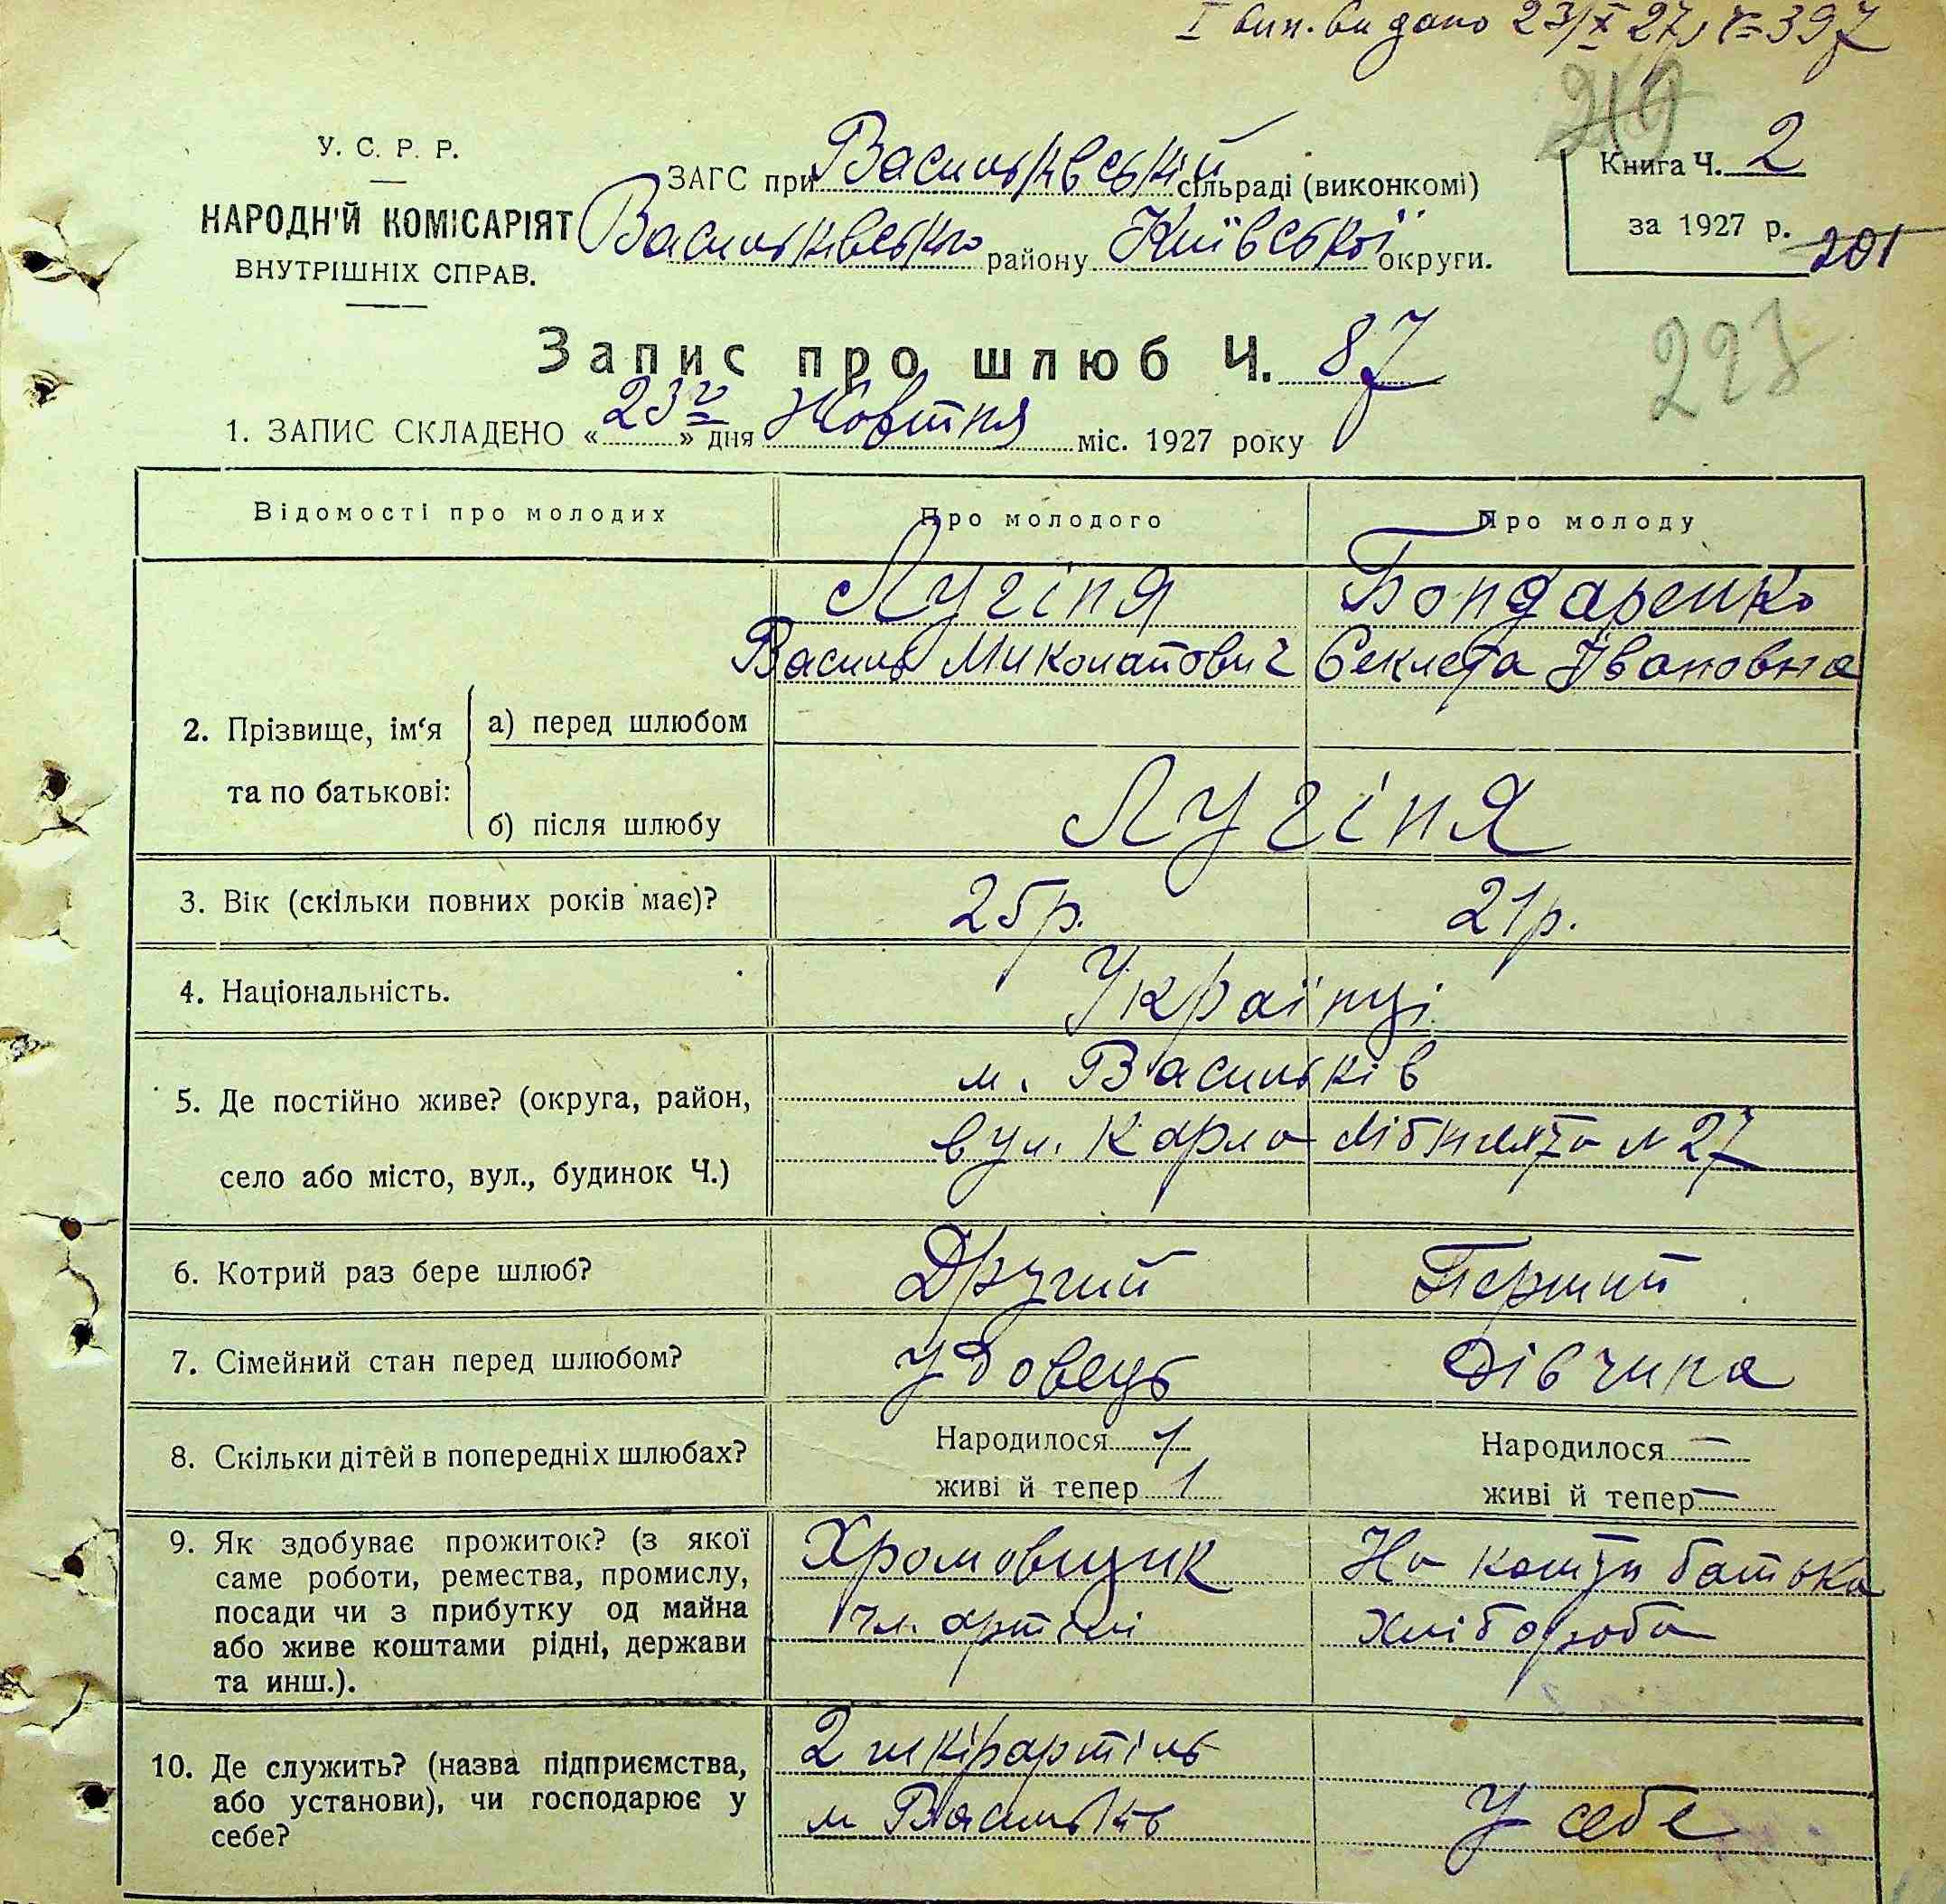 І вип. видано 23/X 27, ч=397
219
У. С. Р. Р.
НАРОДН'Й КОМІСАРІЯТ
ВНУТРІШНІХ СПРАВ.
ЗАГС при Васильківській сільраді (виконкомі)
Васильківського району Київської округи.
Книга Ч. 2
за 1927 р.
201
223
Запис про шлюб Ч. 87
1. ЗАПИС СКЛАДЕНО « 23го » дня Жовтня міс. 1927 року
Відомості про молодих
Про молодого
Про молоду
2. Прізвище, ім'я та по батькові:
а) перед шлюбом
Лугіня
Василь Миколайович
Бондаренко
Секлета Івановна
б) після шлюбу
Лугіня
3. Вік (скільки повних років має)?
25 р.
21 р.
4. Національність.
Українці
5. Де постійно живе? (округа, район,
село або місто, вул., будинок Ч.)
м. Васильків
вул. Карла Лібкнехта № 27
6. Котрий раз бере шлюб?
Другий
Перший
7. Сімейний стан перед шлюбом?
Удовець
Дівчина
8. Скільки дітей в попередніх шлюбах?
Народилося 1
живі й тепер 1
Народилося –
живі й тепер –
9. Як здобуває прожиток? (з якої
саме роботи, ремества, промислу,
посади чи з прибутку од майна
або живе коштами рідні, держави
та инш.).
Хромовщик
чл. артілі
На кошти батька
хлібороба
10. Де служить? (назва підприємства,
або установи), чи господарює у
себе?
2 шкірартіль
м Васильків
У себе